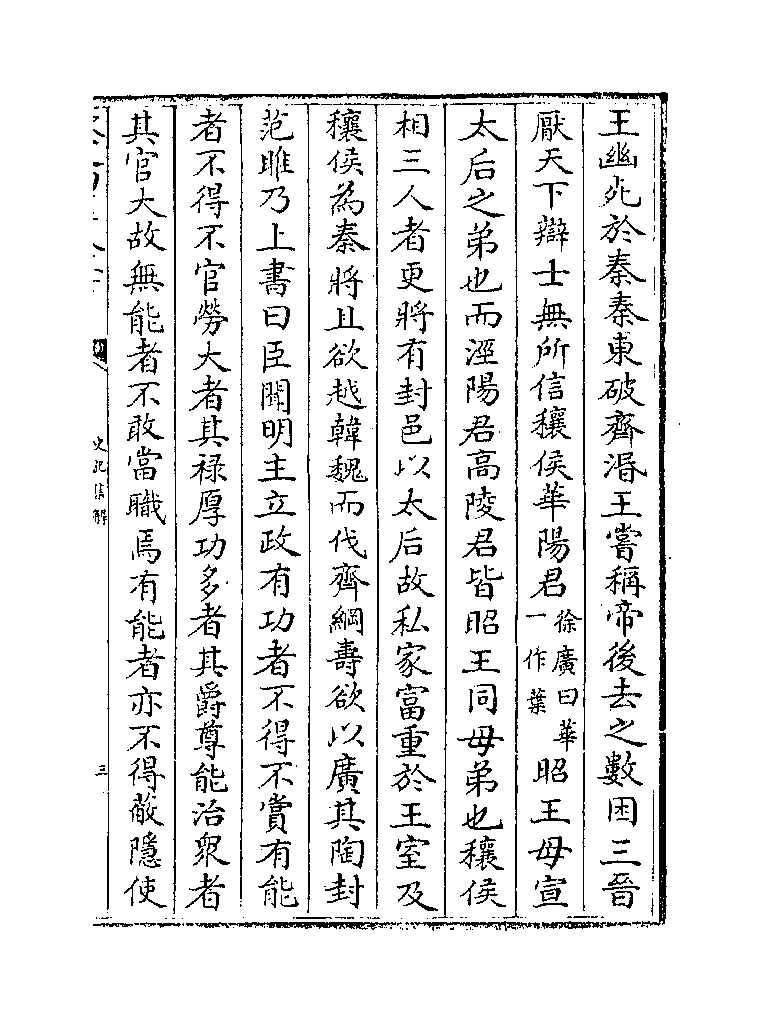 王幽死於秦秦東破齊湣王嘗稱帝後去之數困三晉
厭天下辯士無所信穰侯華陽君徐廣曰華一作葉昭王母宣
太后之弟也而涇陽君高陵君皆昭王同母弟也穰侯
相三人者更將有封邑以太后故私家富重於王室及
穰侯為秦將且欲越韓魏而伐齊綱壽欲以廣其陶封
范雎乃上書曰臣聞明主立政有功者不得不賞有能
者不得不官勞大者其禄厚功多者其爵尊能治衆者
其官大故無能者不敢當職焉有能者亦不得蔽隱使
史記集解
三